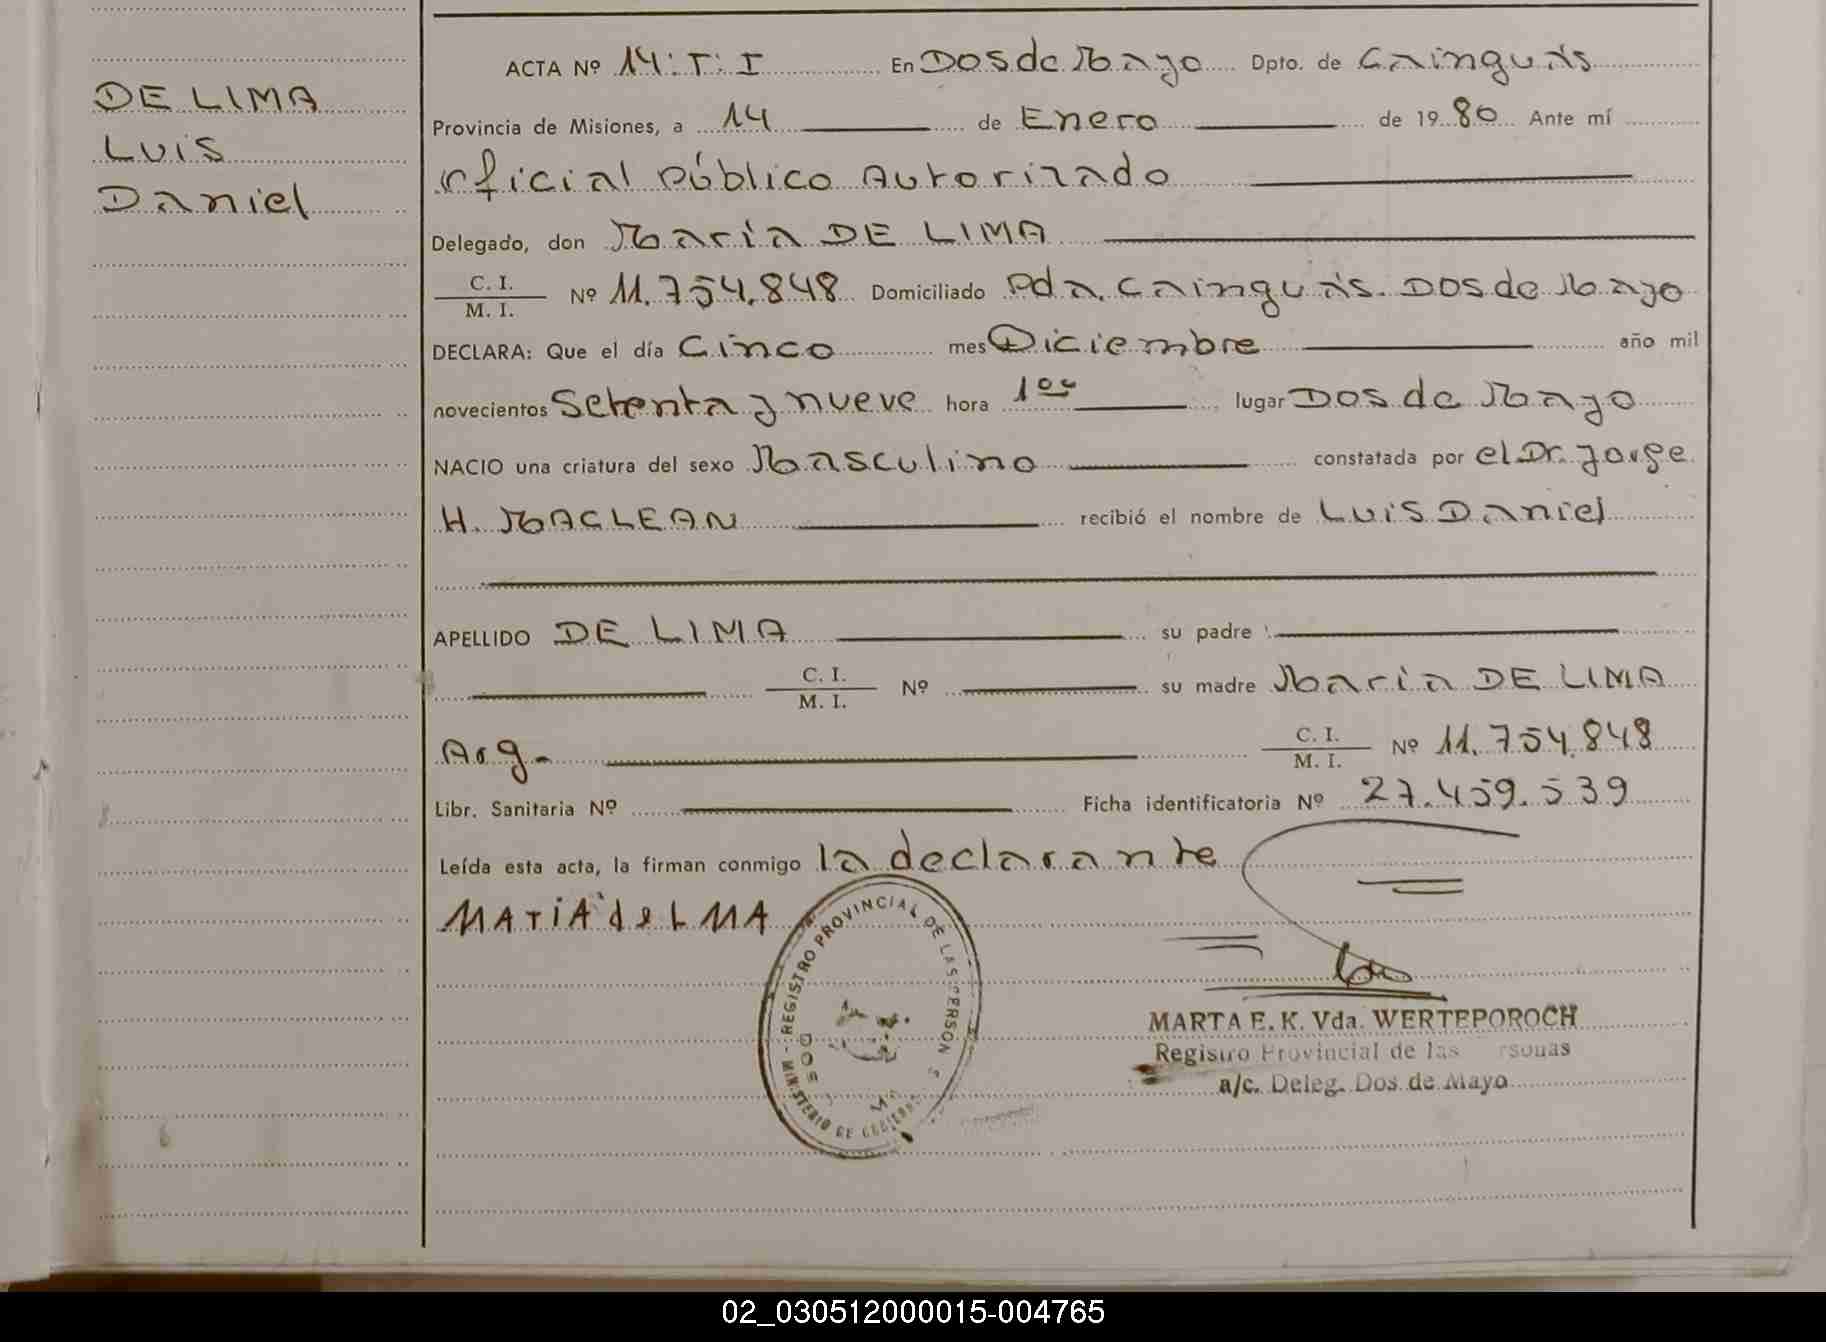 DE LIMA
LUIS
Daniel
ACTA Nº 14: T: I En Dos de Mayo Dpto. de Cainguás
Provincia de Misiones, a 14 de Enero de 1980 Ante mí
Oficial Público Autorizado
Delegado, don María DE LIMA
C. I.
M. I. Nº 11.754.848 Domiciliado Pda. Cainguás. Dos de Mayo
DECLARA: Que el día Cinco mes Diciembre año mil
novecientos Setenta y nueve hora 1oo lugar Dos de Mayo
NACIO una criatura del sexo Masculino constatada por el Dr. Jorge
H. MACLEAN recibió el nombre de LUIS Daniel
APELLIDO DE LIMA su padre
C. I.
M. I. Nº su madre María DE LIMA
Arg. C. I.
M. I. Nº 11.754.848
Libr. Sanitaria Nº Ficha identificatoria Nº 27.459.539
Leída esta acta, la firman conmigo la declarante
MARIA de LMA
MINISTERIO DE GOBIERNO - REGISTRO PROVINCIAL DE LAS PERSONAS
DOS
MARTA E. K. Vda. WERTEPOROCH
Registro Provincial de las rsonas
a/c. Deleg. Dos de Mayo
02_030512000015-004765